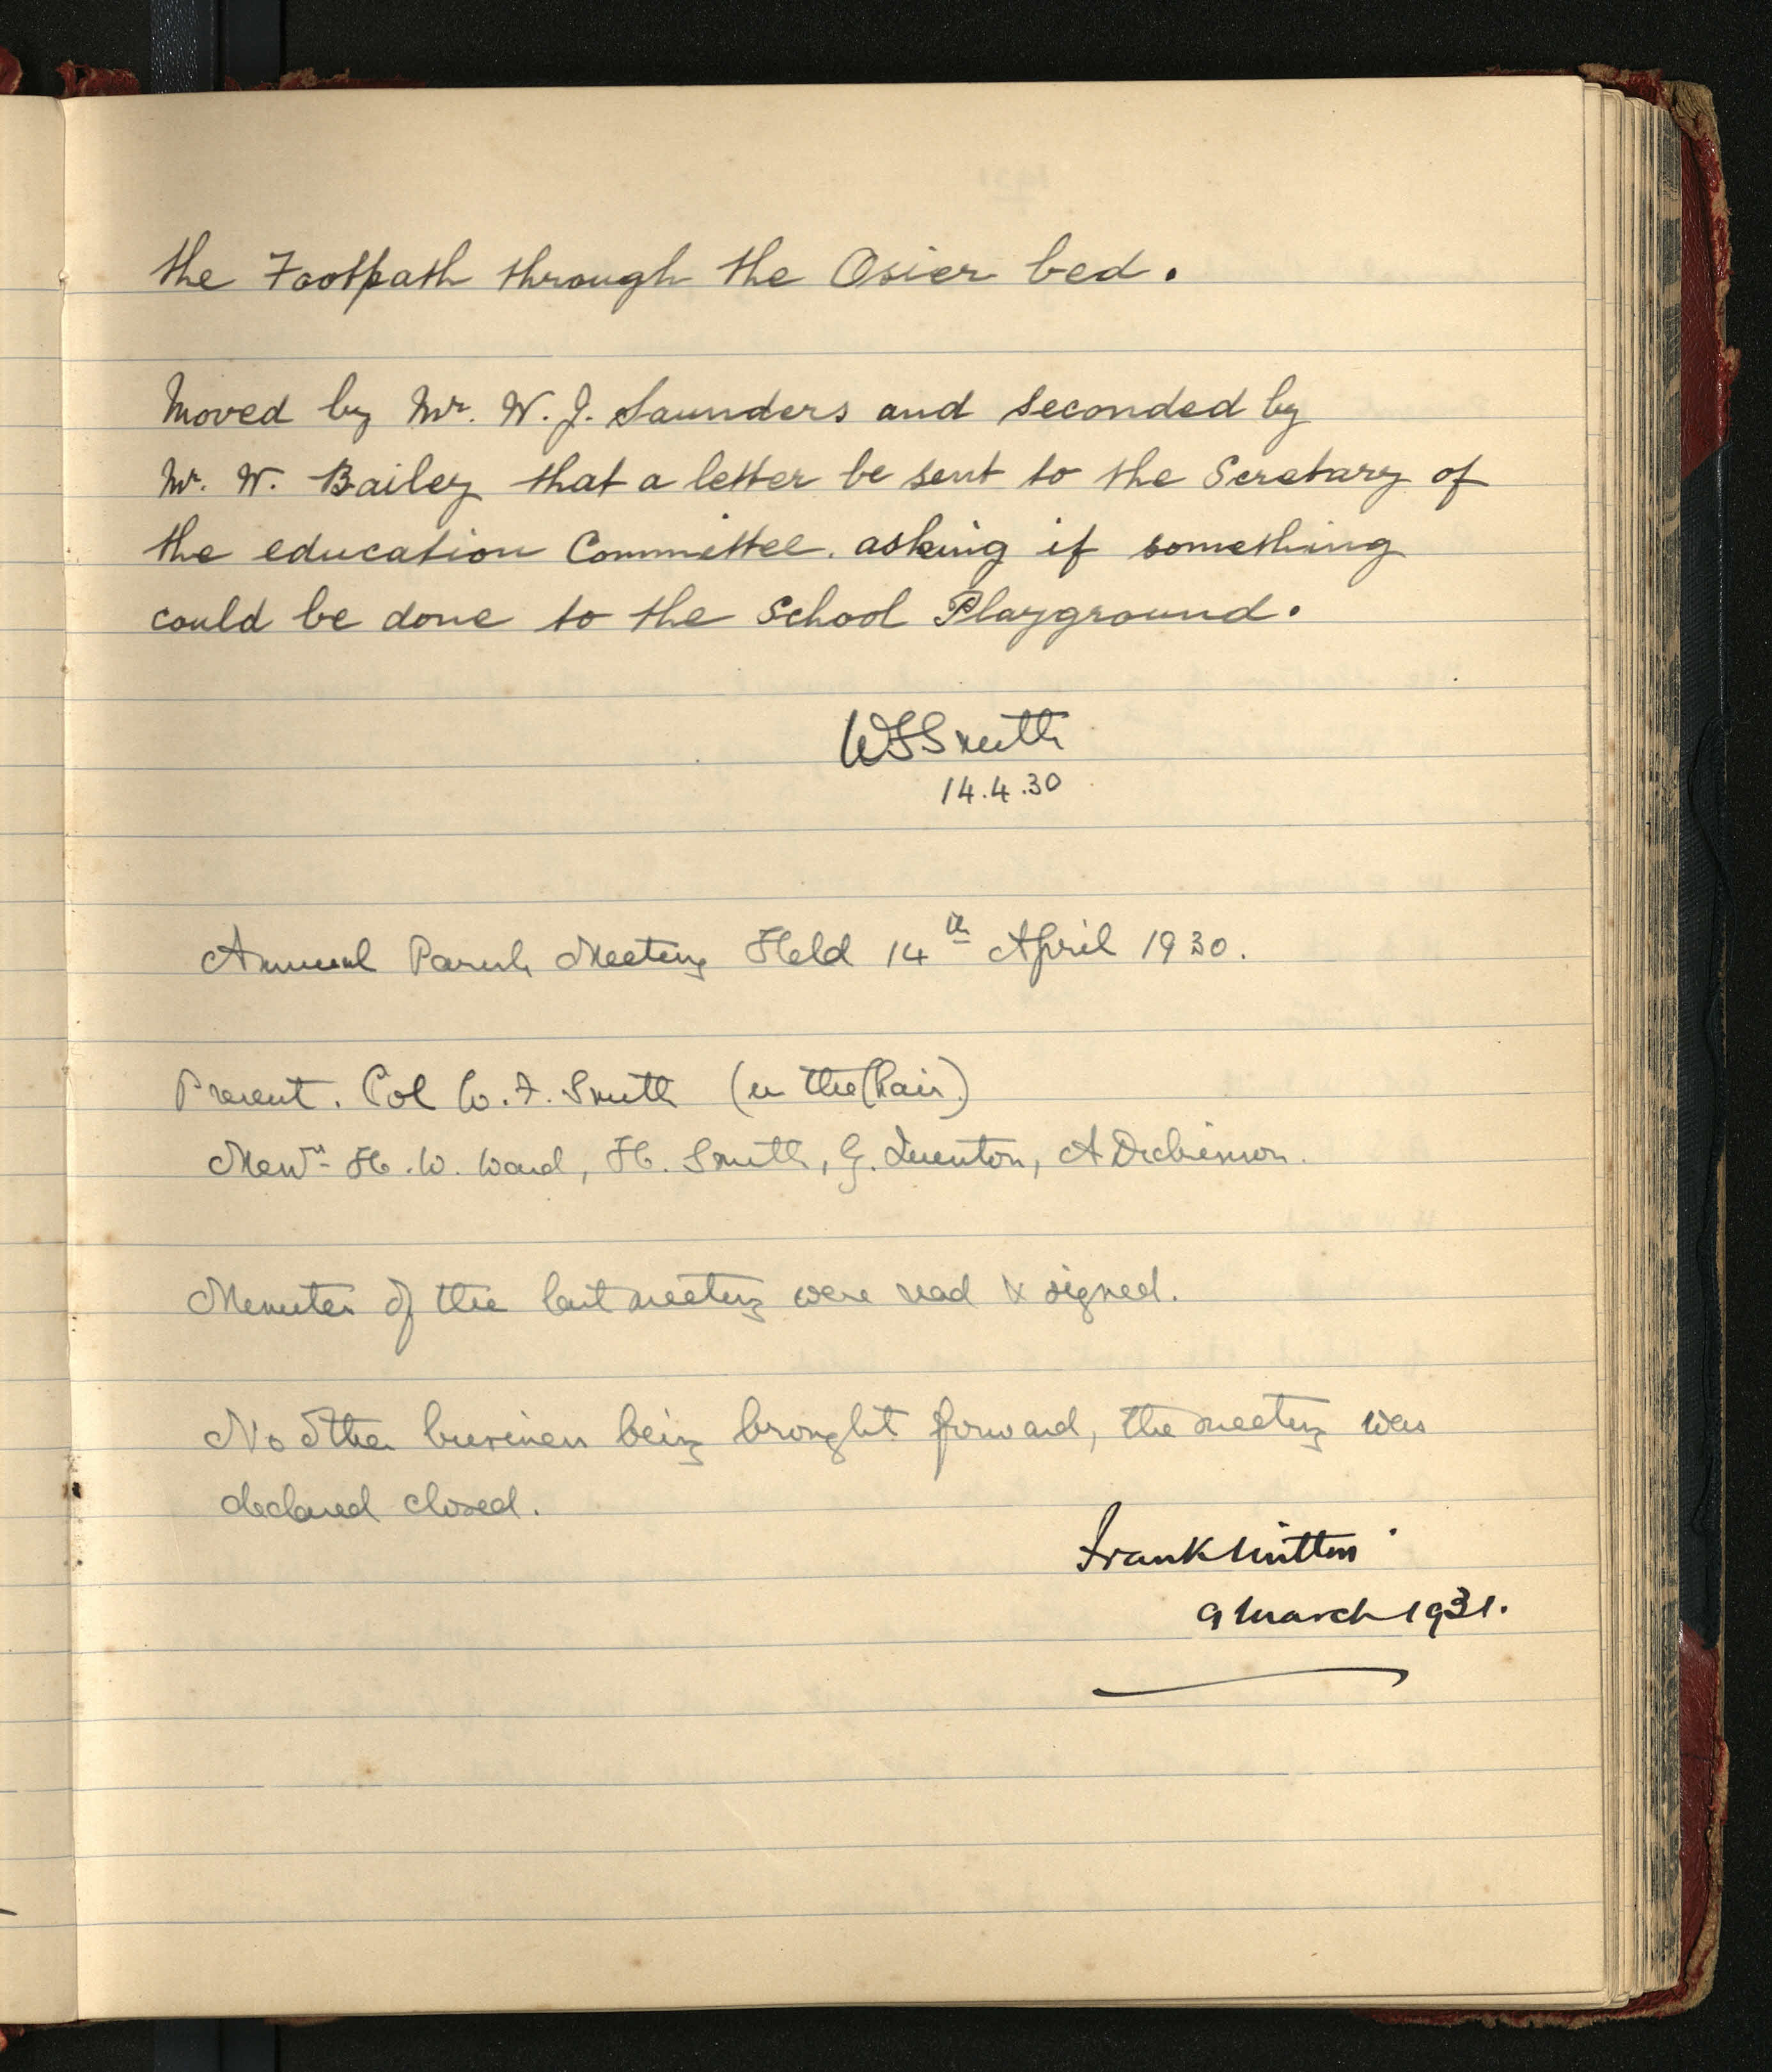 the Footpath through the Osier bed.
Moved by Mr. W. J. Saunders and seconded by
Mr. W. Bailey that a letter be sent to the Secretary of
the education Committee. asking if something
could be done to the School Playground.
WFSmith
14.4.30
Annual Parish Meeting Held 14th April 1930.
Present. Col W. F. Smith (in the Chair.)
Messrs H. W. Ward, H. Smith, G. Quenton, A Dickinson.
Minutes of the last meeting were read & signed.
No other business being brought forward, the meeting was
declared closed.
Frank
9 March 1931.